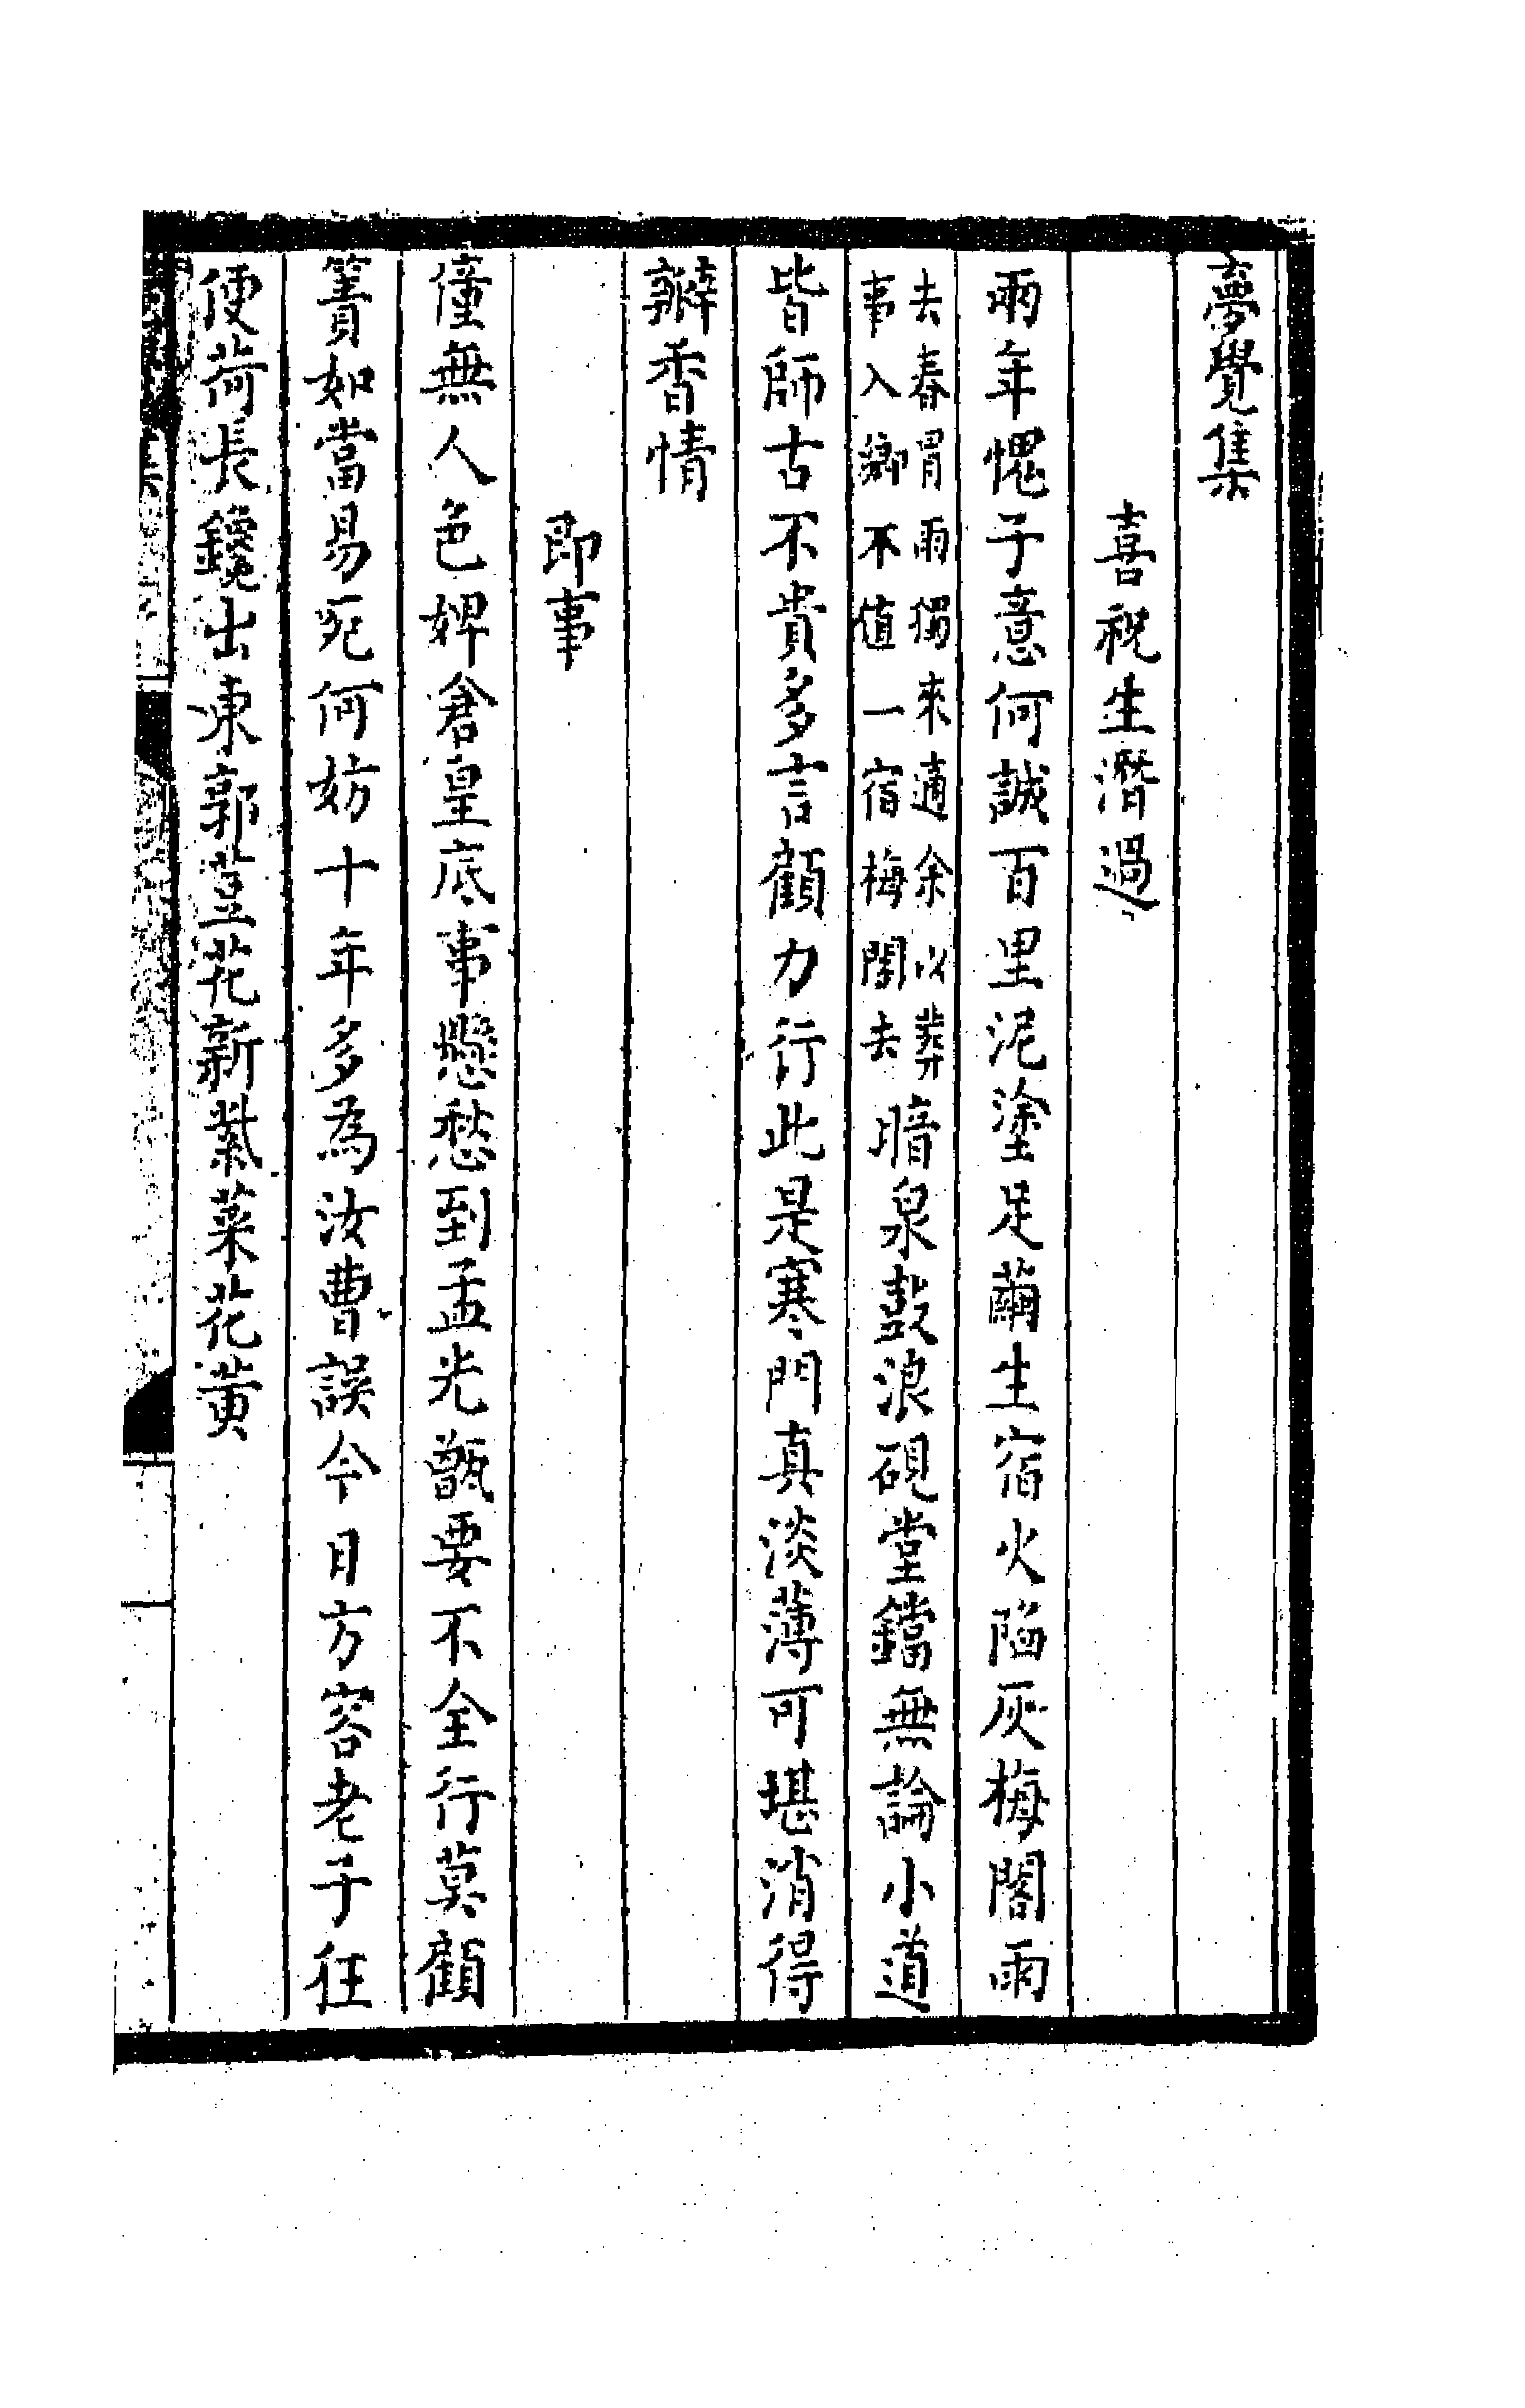 夢覺集
喜祝生潛過
兩年愧子意何誠百里泥塗足繭生宿火陷灰梅閣雨
去春冒雨獨來適余以葬
事入鄉不值一宿梅閣去
暗泉鼓浪硯堂鐺無論小道
皆師古不貴多言顧力行此是寒門真淡薄可堪消得
瓣香情
即事
僮無人色婢倉皇底事懸愁到孟光甑要不全行莫顧
簀如當易死何妨十年多為汝曹誤今日方容老子狂
便荷長鑱出東郭荳花新紫菜花黃